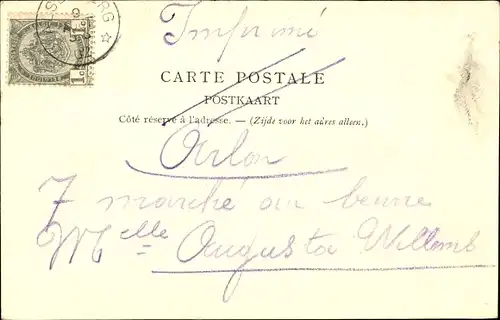 Imprimé
CARTE POSTALE
POSTKAART
Côté réservé à l'adresse. — (Zijde voor het adres alleen.)
Arlon
7 marché au beurre
Mlle = Augusta Willems